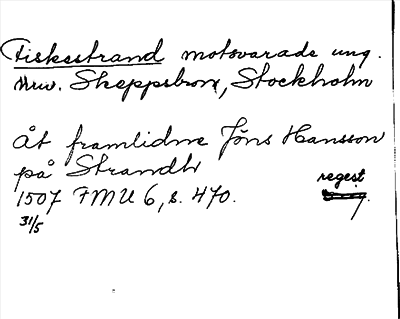 Fiskestrand motsvarade ung.
nuv. Skeppsbron, Stockholm
åt framlidne Jöns Hansson
på Strandh
1507 FMU 6, s. 470. regest
31/5